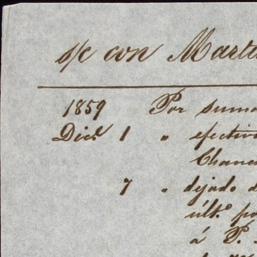 s/c con Mart
1859 Por suma
Dice 1 " efectiv
Chanc
7 " dejado d
últ.o po
á P.